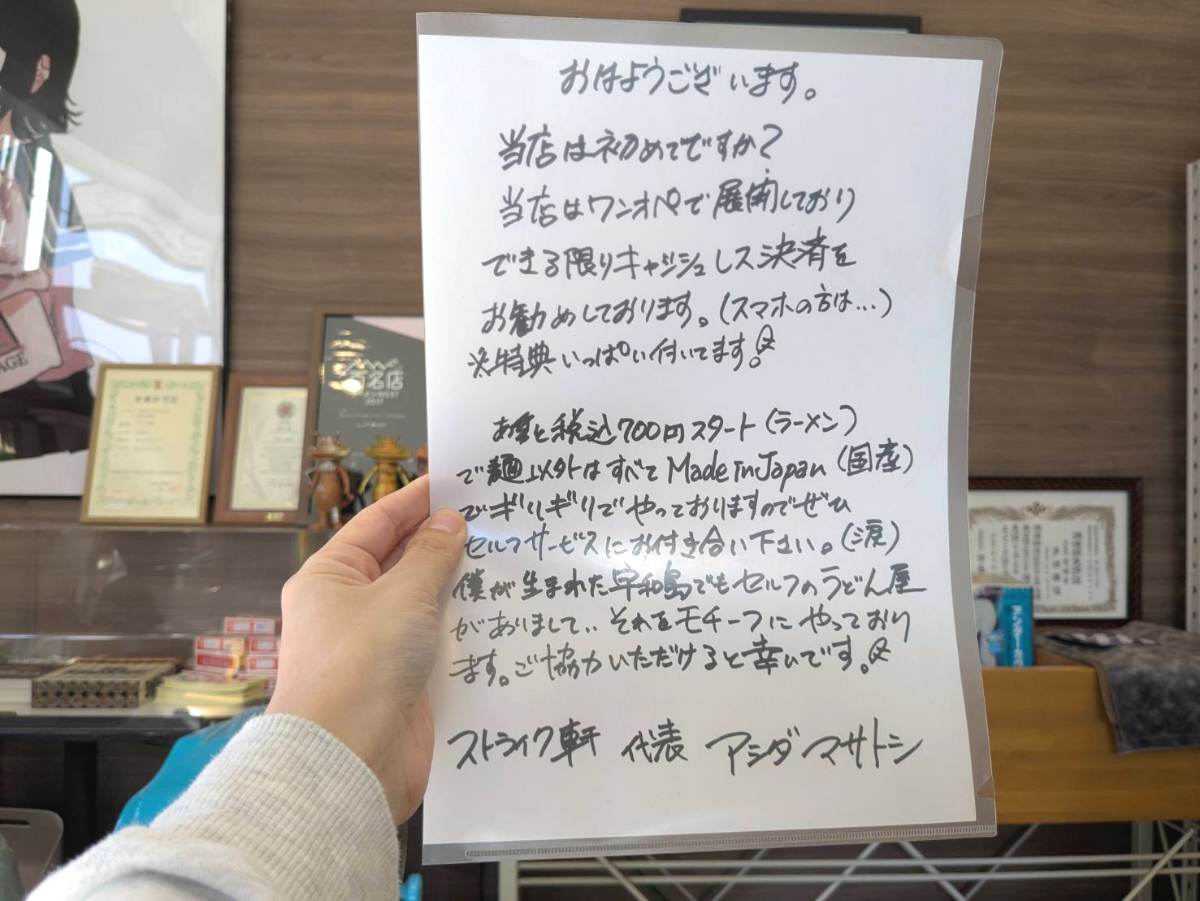 おはようございます。
当店は初めてですか?
当店はワンオペで展開しており
できる限りキャッシュレス決済を
お勧めしております。(スマホの方は…)
※特典いっぱい付いてます。
税込700円スタート(ラーメン)
で麺以外はすべてMade in Japan(国産)
でギリギリでやっておりますのでぜひ
セルフサービスにお付き合い下さい。(涙)
僕が生まれた宇和島でもセルフのうどん屋
がありまして‥それをモチーフにやっており
ます。ご協力いただけると幸いです。
ストライク軒 代表 アシダマサトシ
百名店
WEST
2017
AGE